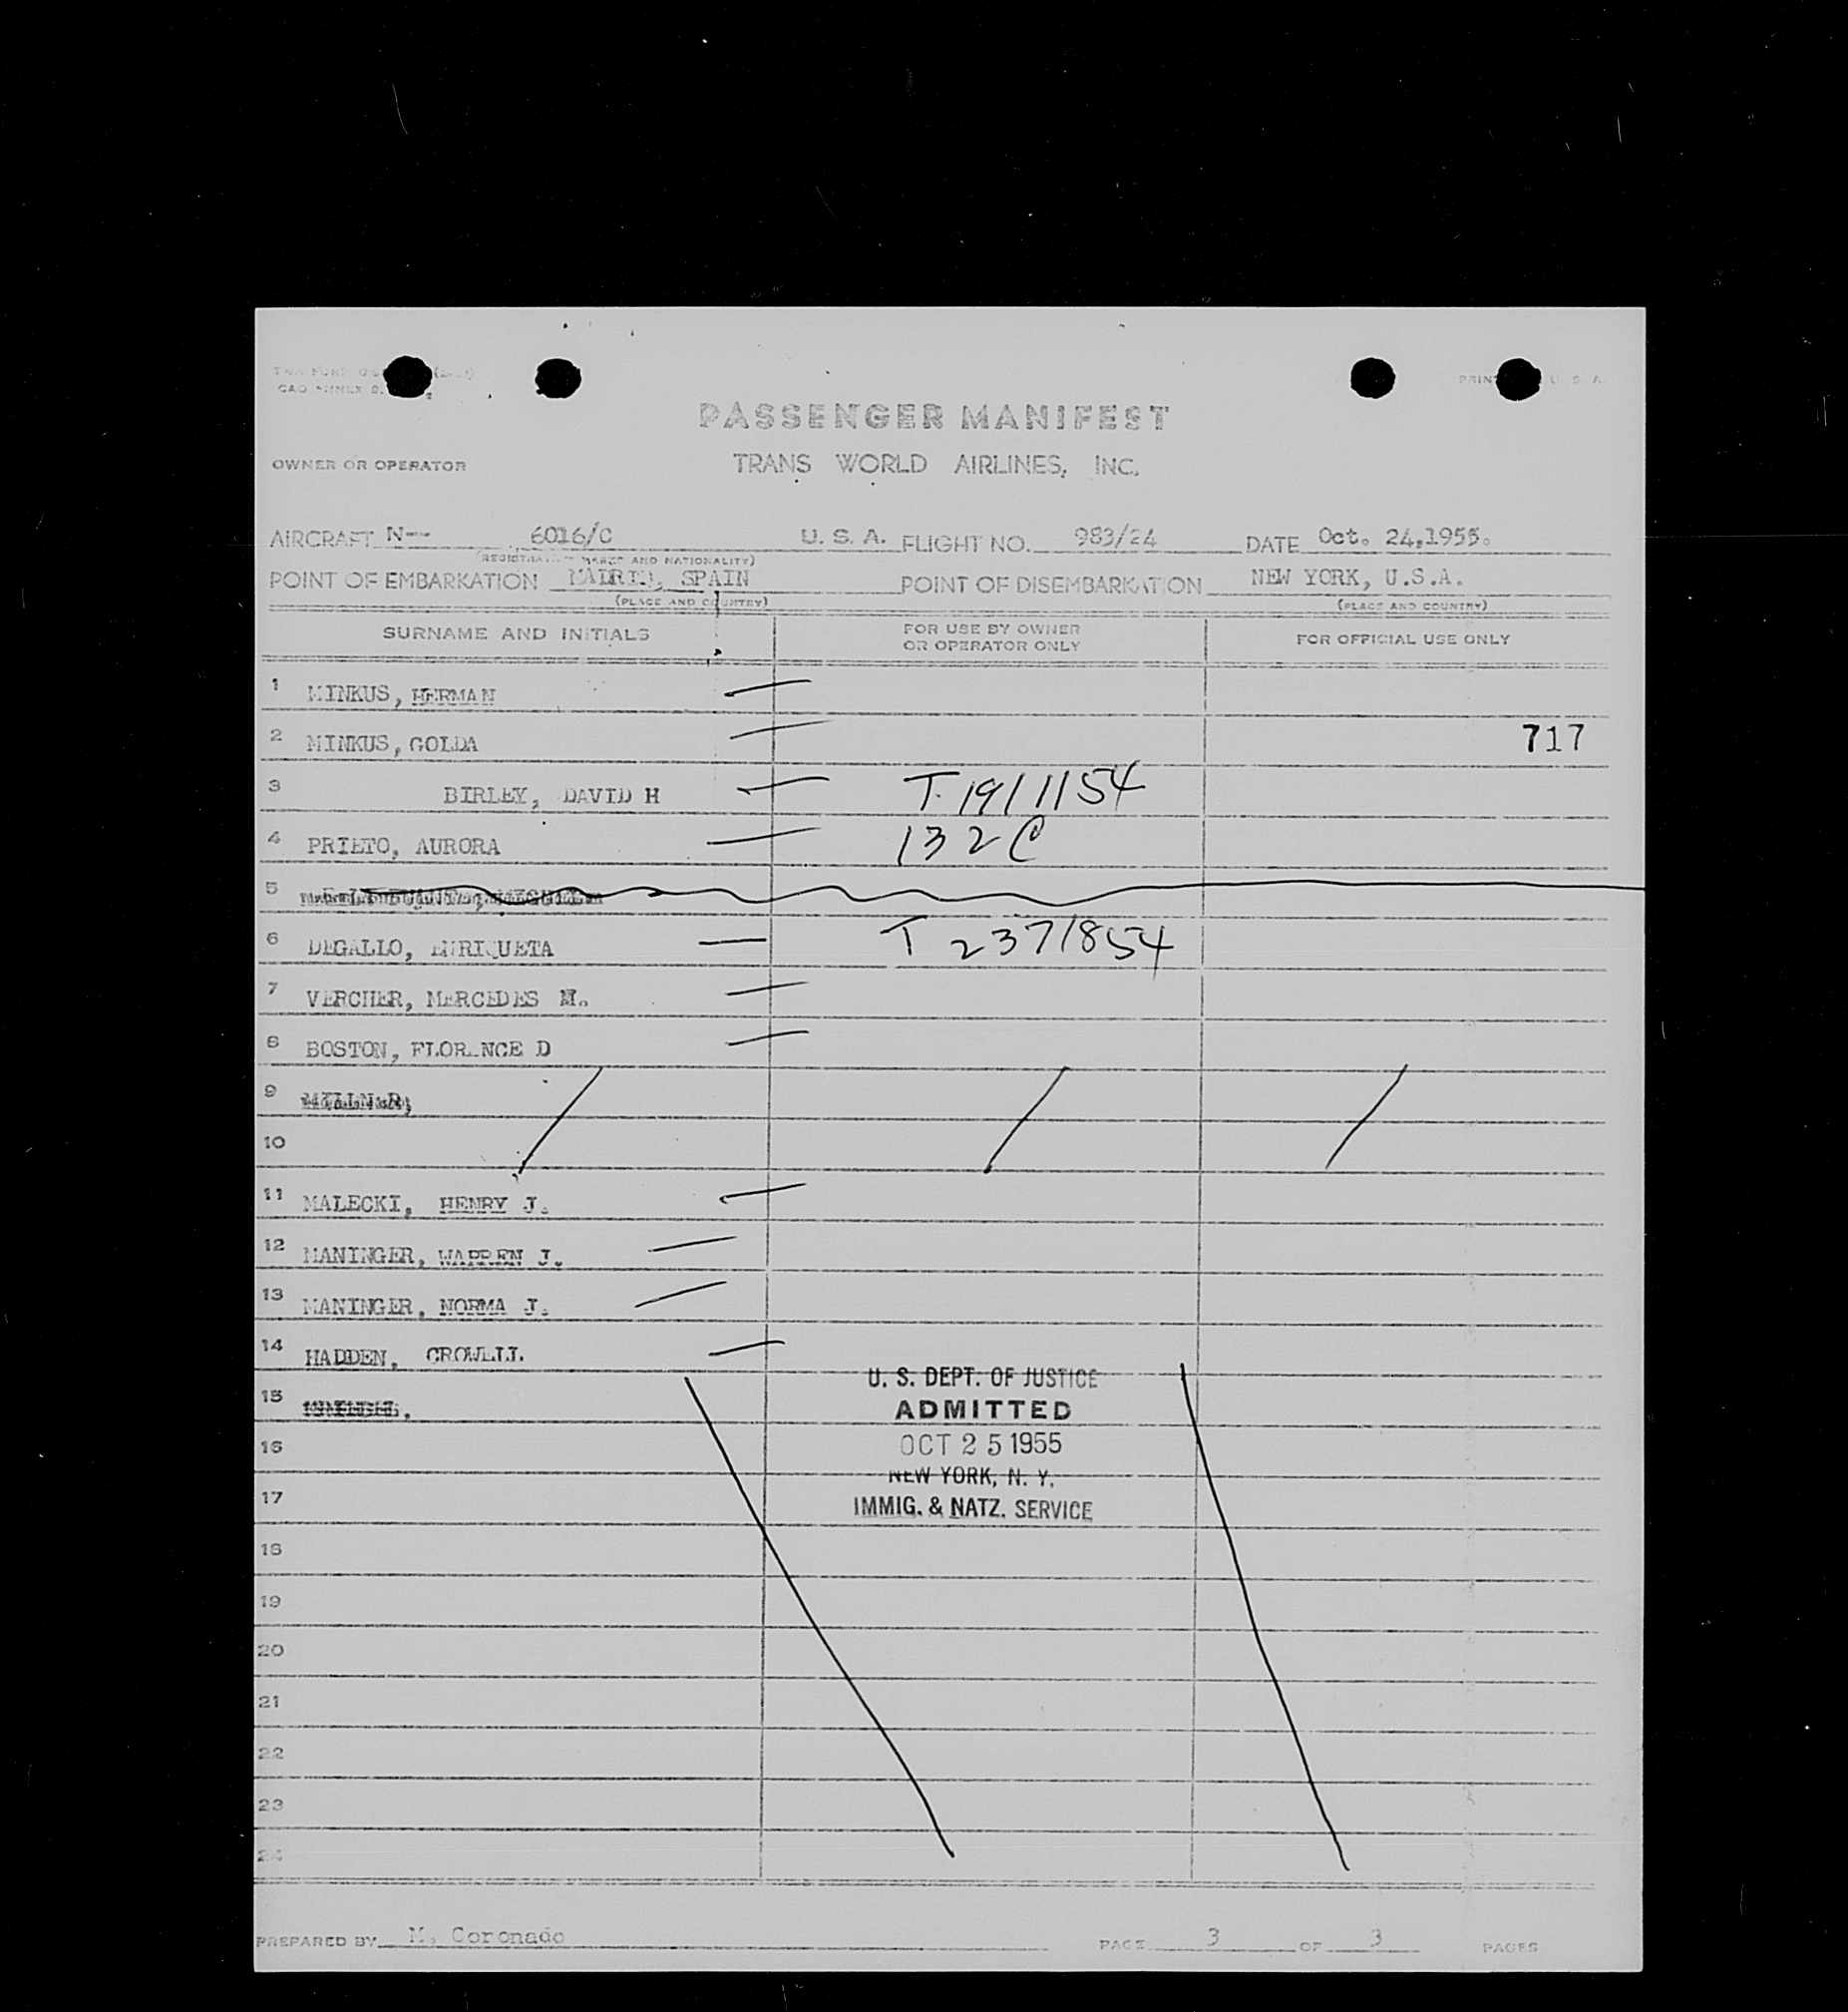 PASSENGER MANIFEST
OWNER OR OPERATOR TRANS WORLD AIRLINES, INC.
AIRCRAFT N-- 6016/C U. S. A. FLIGHT NO. 983/24 DATE Oct. 24,1955.
(REGISTRATION MARKS AND NATIONALITY)
POINT OF EMBARKATION MADRID, SPAIN POINT OF DISEMBARKATION NEW YORK, U.S.A.
(PLACE AND COUNTRY) (PLACE AND COUNTRY)
SURNAME AND INITIALS FOR USE BY OWNER OR OPERATOR ONLY FOR OFFICIAL USE ONLY
1 MINKUS, HERMAN
2 MINKUS, GOLDA 717
3 BIRLEY, DAVID H T. 1911154
4 PRIETO, AURORA 132 C
5
6 DEGALLO, ENRIQUETA T 2371854
7 VERCHER, MERCEDES M.
8 BOSTON, FLORENCE D
9
10
11 MALECKI, HENRY J.
12 MANINGER, WARREN J.
13 MANINGER, NORMA J.
14 HADDEN, CROWELL
U. S. DEPT. OF JUSTICE
15
ADMITTED
16 OCT 25 1955
NEW YORK, N. Y.
17 IMMIG. & NATZ. SERVICE
18
19
20
21
22
23
24
PREPARED BY M. Coronado PAGE 3 OF 3 PAGES